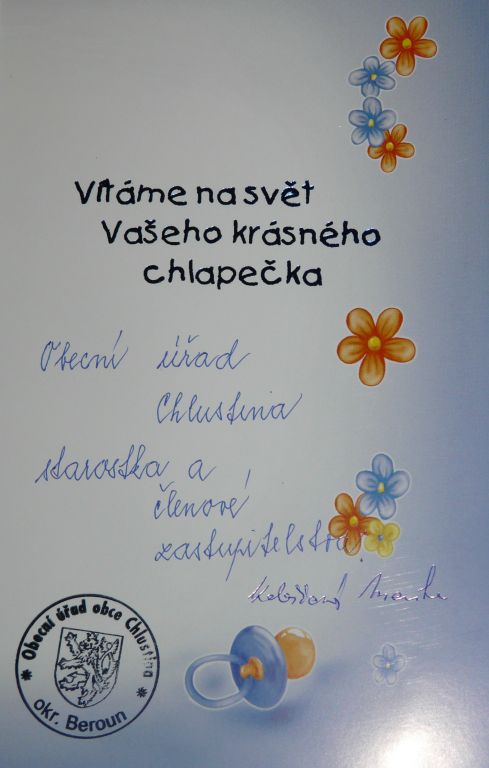 Vítáme na svět
Vašeho krásného
chlapečka
Obecní úřad
Chlustina
starostka a
členové
zastupitelstva.
Obecní úřad obce Chlustina
okr. Beroun